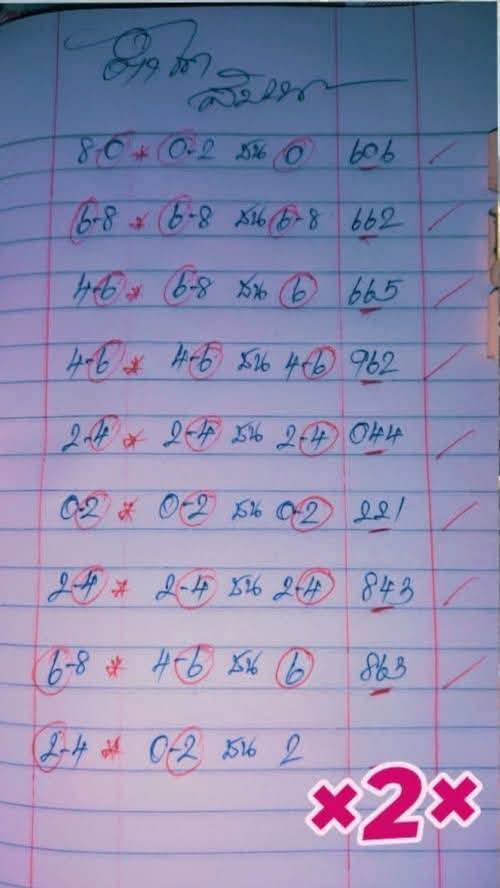 8-0 * 0-2 ชน 0 606
6-8 * 6-8 ชน 6-8 662
4-6 * 6-8 ชน 6 665
4-6 * 4-6 ชน 4-6 962
2-4 * 2-4 ชน 2-4 044
0-2 * 0-2 ชน 0-2 221
2-4 * 2-4 ชน 2-4 843
6-8 * 4-6 ชน 6 863
2-4 * 0-2 ชน 2
×2×